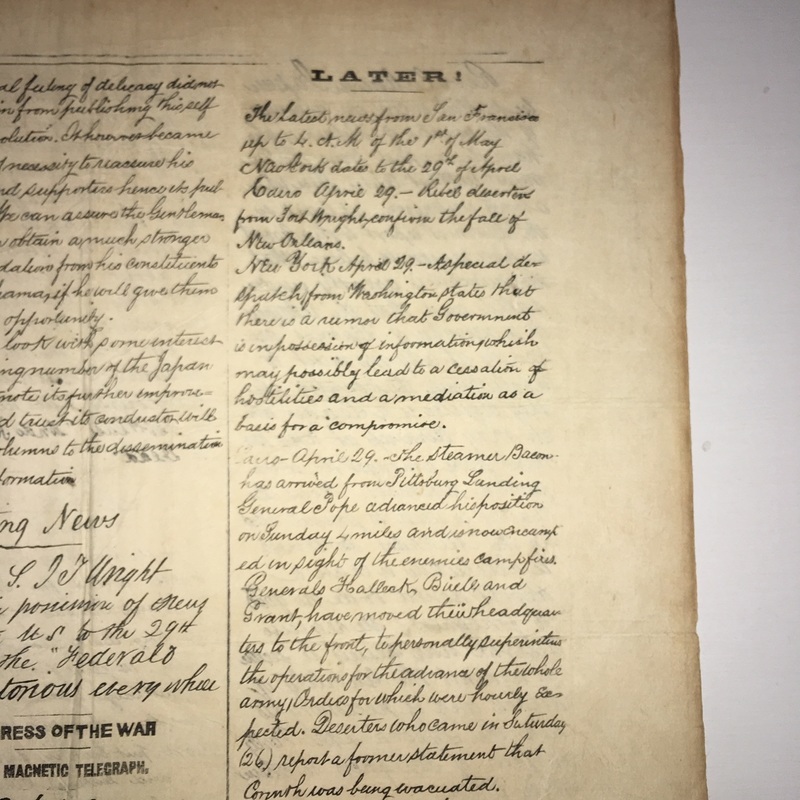 al feeling of delicacy did not
in from publishing this self
olution. It however became
necessity to reassure his
nd supporters hence its pub
We can assure the Gentleman
obtain a much stronger
dation from his constituents
if he will give them
opportunity.
look with some interest
ing number of the Japan
note its further improve-
d trust its conductor will
olumns to the dissemination
formation
ng News
S. J T Wright
possession of
U S to the 29th
The "Federals
torious every where
RESS OF THE WAR
MAGNETIC TELEGRAPH.
LATER!
The Latest news from San Francisco
up to 4. A.M of the 1st of May
New York dates to the 29th of April
Cairo April 29.- Rebel deserters
from Fort Wright, confirm the fall of
New Orleans.
New York April 29.- A special des-
patch from Washington states that
there is a rumor that Government
is in possession of information, which
may possibly lead to a cessation of
hostilities and a mediation as a
basis for a compromise.
Cairo- April 29.- The steamer Bacon
has arrived from Pittsburg Landing
General Pope advanced his position
on Sunday 4 miles and is now encamp
ed in sight of the enemies camp fires.
Generals Halleck, Buell and
Grant, have moved their headquar
ters to the front, to personally superintend
the operations for the advance of the whole
army, Orders for which were hourly Ex-
pected. Deserters who came in Saturday
(26) report a former statement that
Corinth was being evacuated.